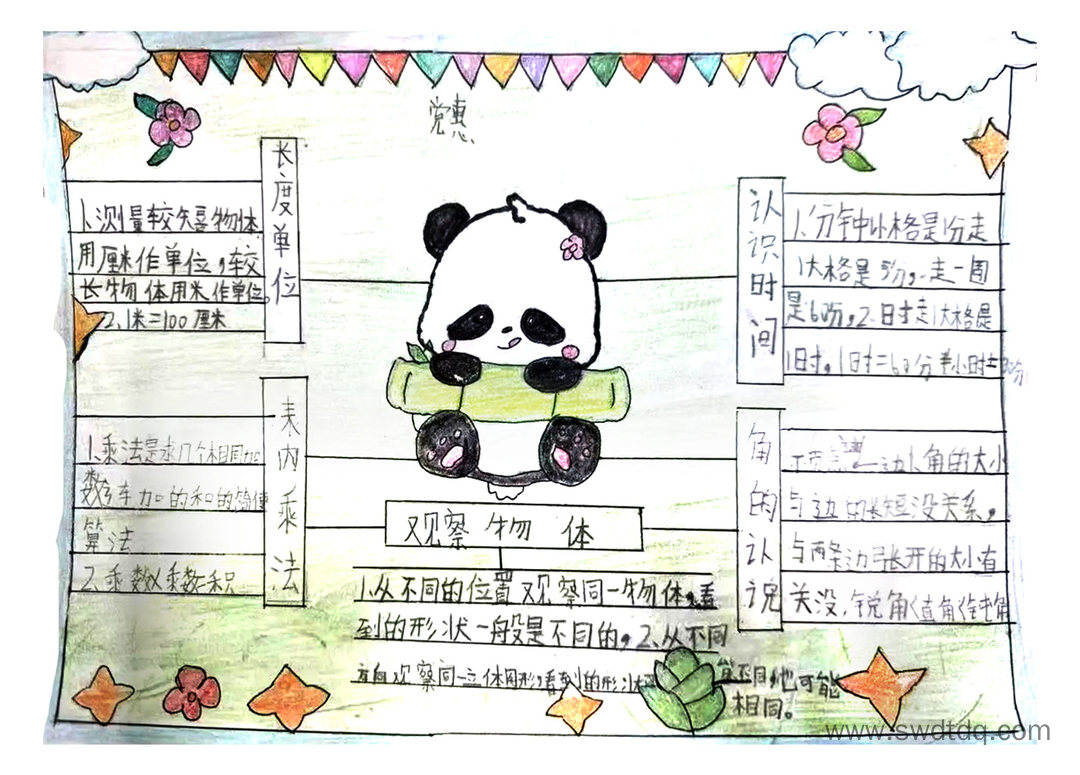 党惠
长度单位
1、测量较短物体
用厘米作单位，较
长物体用米作单位。
2、1米=100厘米
表内乘法
1、乘法是求几个相同加
数连加的和的简便
算法
2、乘数×乘数=积
认识时间
1、分针中1小格是1分走
1大格是5分，走一周
是60分，2、时走1大格是
1时，1时=60分半小时=30分
角的认识
一边1、角的大小
与边的长短没关系，
与两条边张开的大小有
关没，锐角<直角<钝角
观察物体
1、从不同的位置观察同一物体，看
到的形状一般是不同的，2、从不同
方向观察同一立体图形，看到的形状
能不同，也可能
相同。
www.swdtdq.com